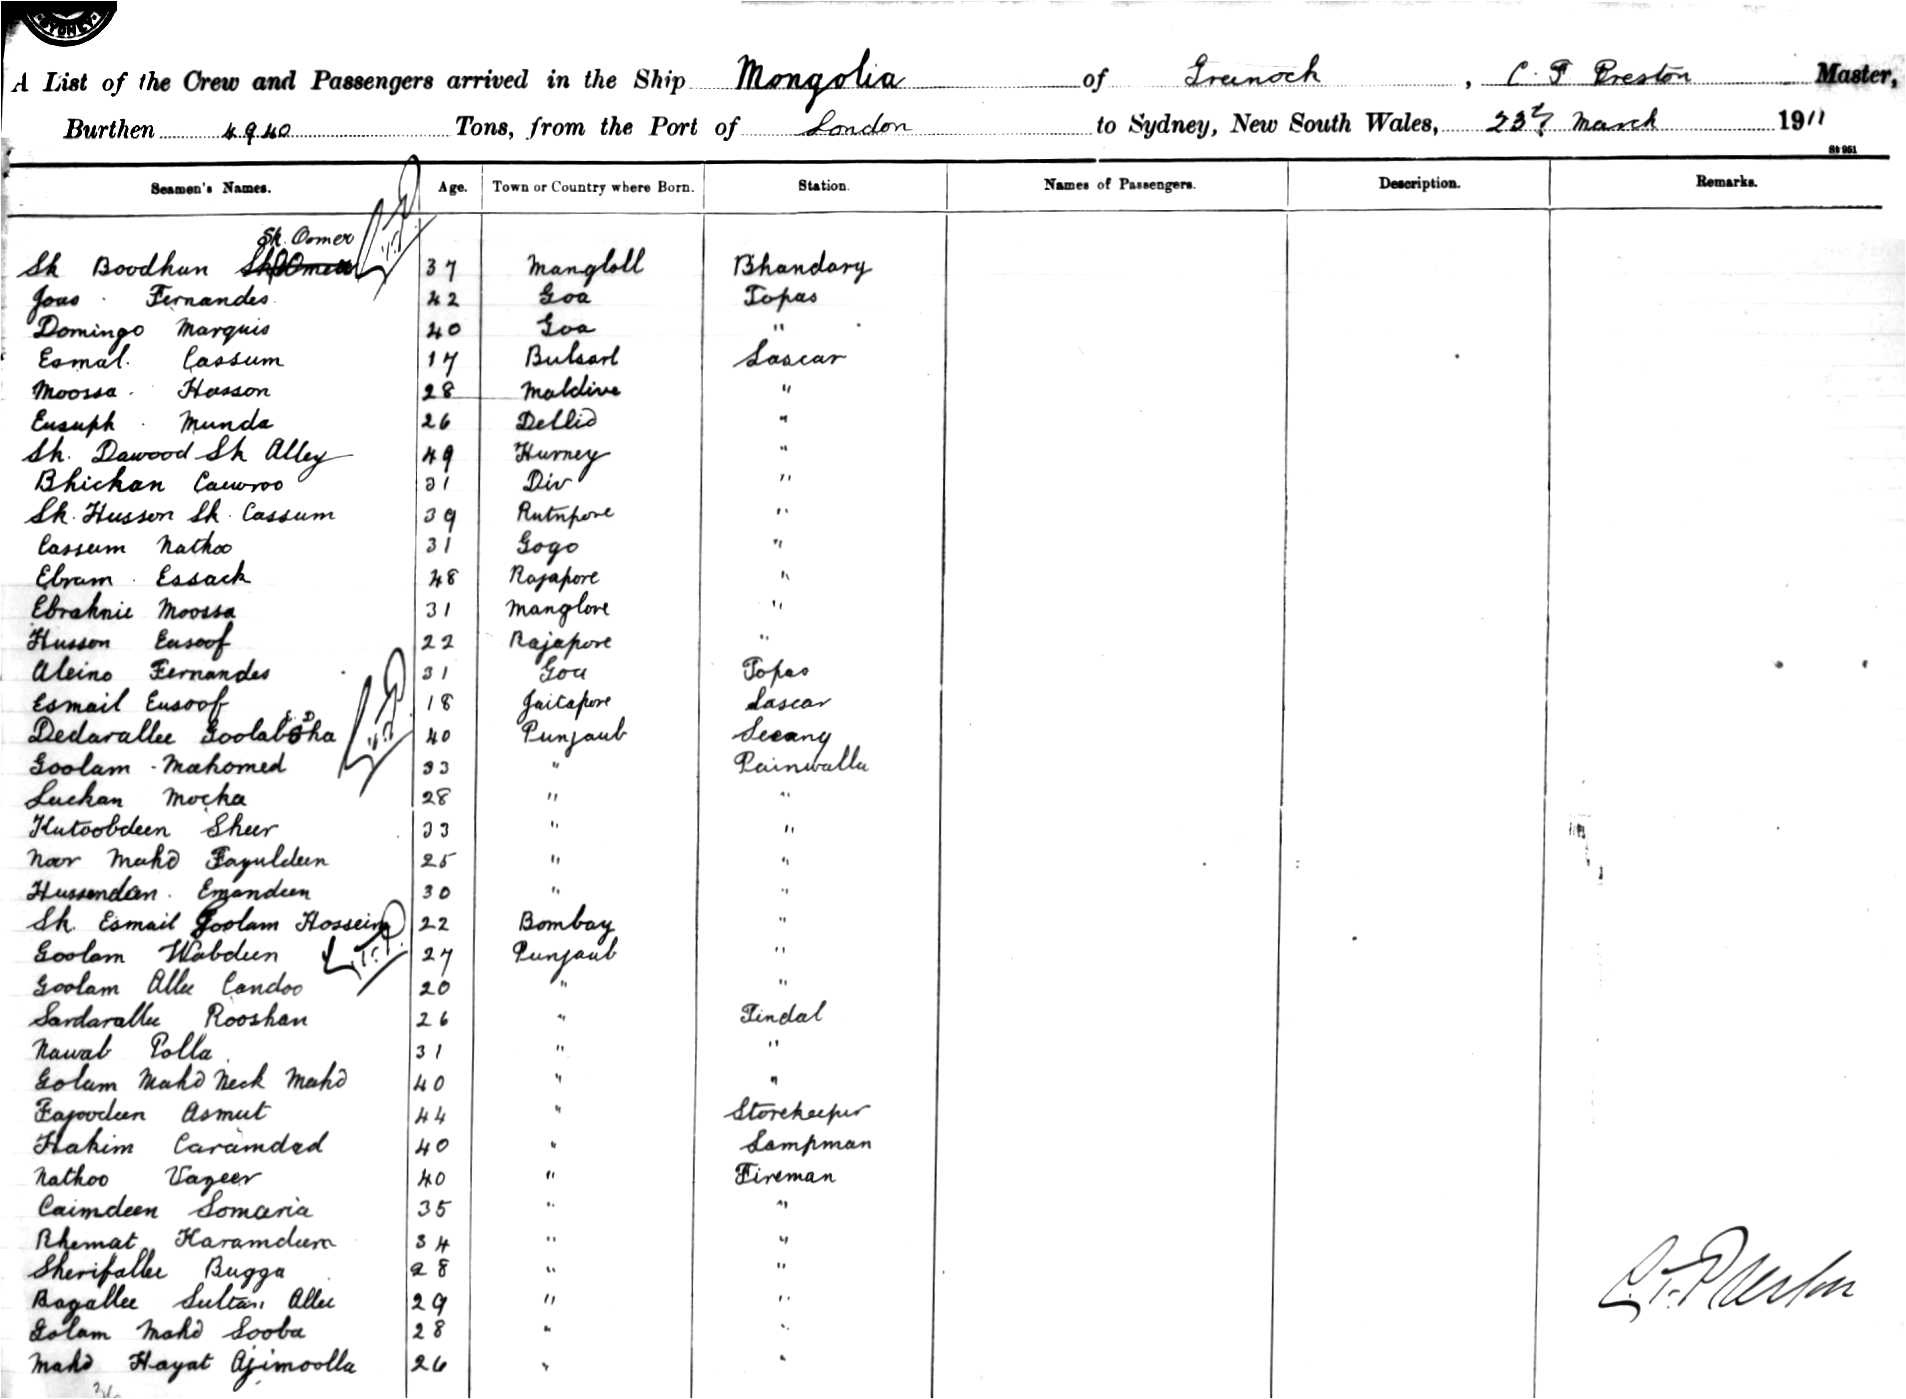 SYDNEY
A List of the Crew and Passengers arrived in the Ship Mongolia of Greenock, C. F Preston Master,
Burthen 4940 Tons, from the Port of London to Sydney, New South Wales, 23rd March 1911
St 951
Seamen's Names. Age. Town or Country where Born. Station. Names of Passengers. Description. Remarks.
Sk. Oomer
Sk Boodhun Sk Oomer 37 Mangloll Bhandary
Joao Fernandes 42 Goa Topas
Domingo Marquis 40 Goa "
Esmal. Cassum 17 Bulsarl Lascar
Moossa Husson 28 Maldive "
Eusuph Munda 26 "
Sk. Dawood Sk Alley 49 Hurney "
Bhichan 31 Div "
Sk. Husson Sk. Cassum 39 Rutnpore "
Cassum Nathoo 31 Gogo "
Ebram Essack 48 Rajapore "
Ebraknie Moossa 31 Manglore "
Husson Eusoof 22 Rajapore "
Aleino Fernandes 31 Goa Topas
Esmail Eusoof 18 Jaitapore Lascar
Dedarallee 40 Punjaub Seeang
Goolam Mahomed 33 " Painwalla
Luckan Mocha 28 " "
Kutoobdeen Sheer 33 " "
Noor Mahd Fazuldeen 25 " "
Hussendeen. Emandeen 30 " "
Sk. Esmail Goolam Hossein 22 Bombay "
Goolam Wabdeen 27 Punjaub "
Goolam Allee Candoo 20 " "
Sardarallee Rooshan 26 " Tindal
Nawab Polla 31 " "
Golam Mahd Neck Mahd 40 " "
Fajoodeen Asmut 44 " Storekeeper
Hakim Caramdad 40 " Lampman
Nathoo Vazeer 40 " Fireman
Caimdeen Somaria 35 " "
Rhemat Karamdeen 34 " "
Sherifallee Bugga 28 " "
C. F. Preston
Bagallee Sultan Allee 29 " "
Golam Mahd Sooba 28 " "
Mahd Hayat Ajimoolla 26 " "